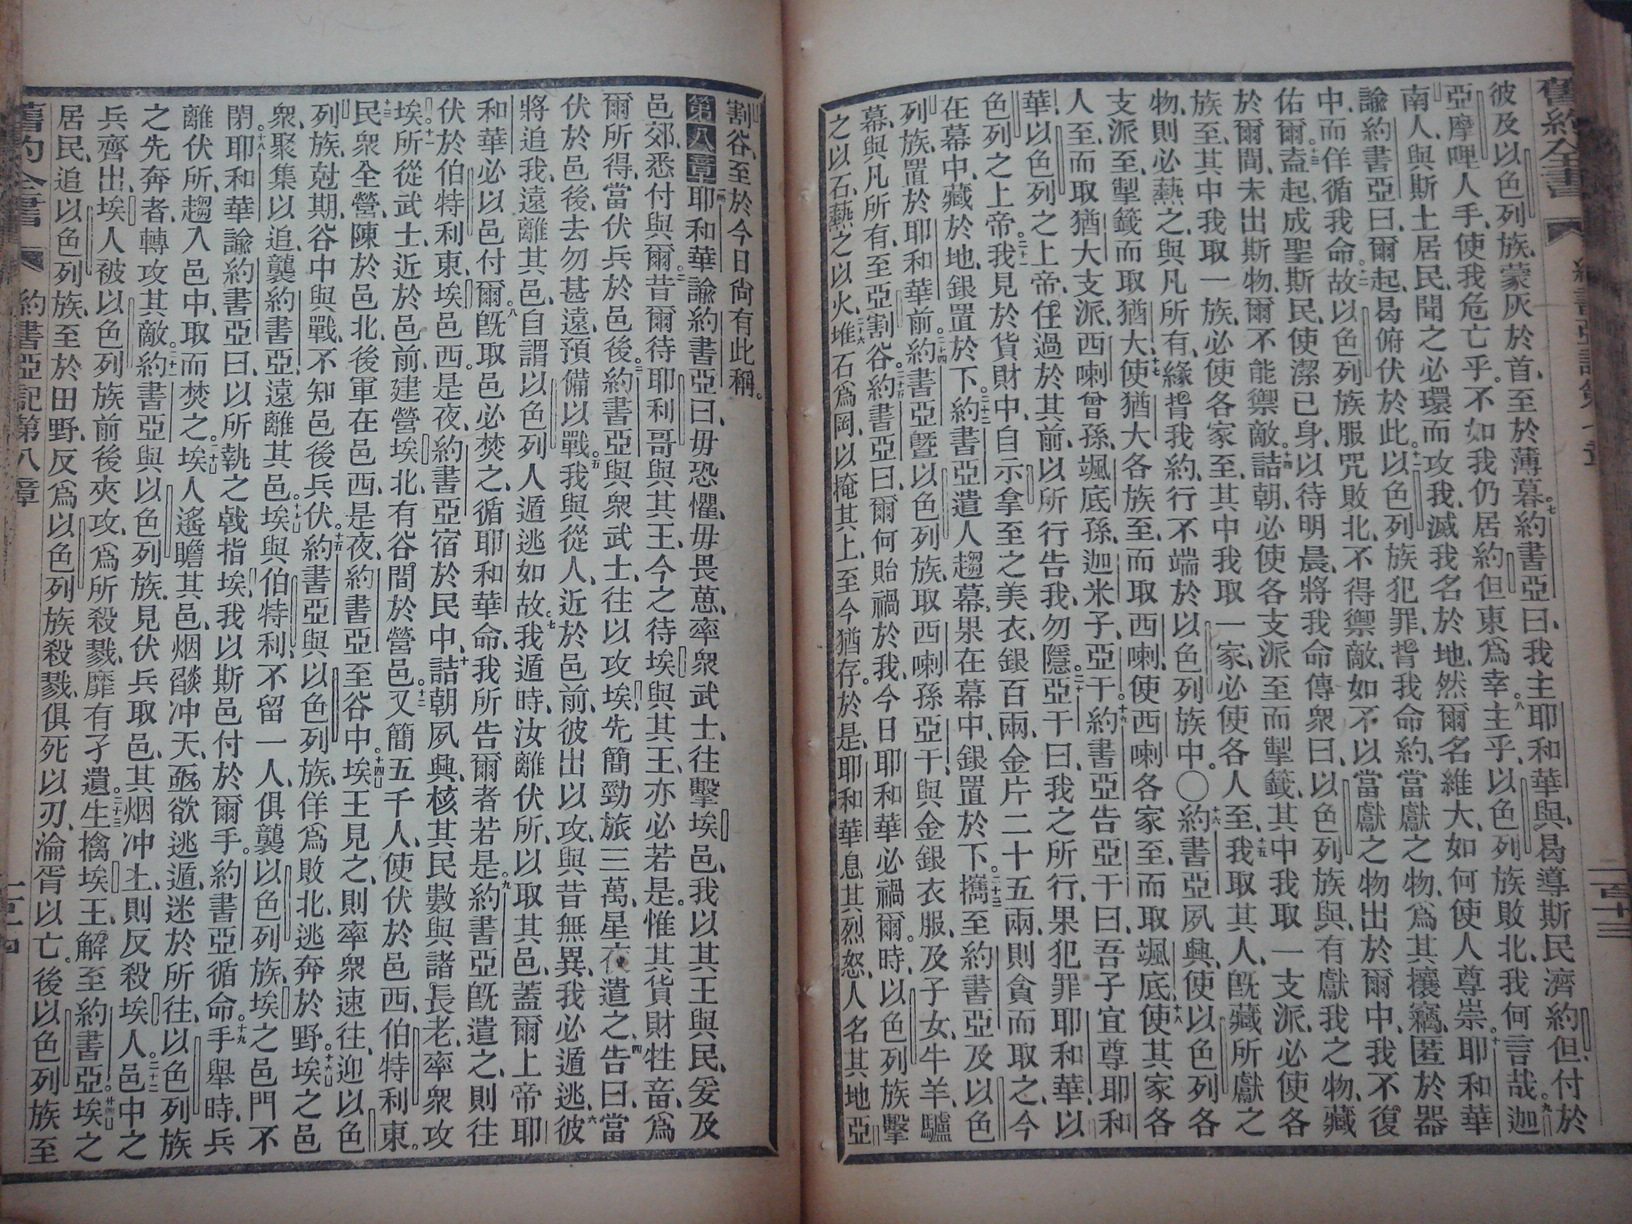 舊約全書 約書亞記第七章 一百十三
彼及以色列族、蒙灰於首、至於薄暮、七約書亞曰、我主耶和華與、曷導斯民濟約但、付於
亞摩哩人手、使我危亡乎、不如我仍居約但東爲幸、八主乎、以色列族敗北、我何言哉、九迦
南人、與斯土居民、聞之必環而攻我、滅我名於地、然爾名維大、如何使人尊崇、十耶和華
諭約書亞曰、爾起、曷俯伏於此、十一以色列族犯罪、背我命約、當獻之物、爲其攘竊、匿於器
中、而佯循我命、故十二以色列族服咒敗北、不得禦敵、如不以當獻之物出於爾中、我不復
佑爾、十三盍起、成聖斯民、使潔己身、以待明晨、將我命傳衆曰、以色列族與、有獻我之物、藏
於爾間、未出斯物、爾不能禦敵、十四詰朝、必使各支派至而掣籤、其中我取一支派、必使各
族至、其中我取一族、必使各家至、其中我取一家、必使各人至、十五我取其人、旣藏所獻之
物、則必爇之、與凡所有、緣背我約、行不端於以色列族中、〇十六約書亞夙興、使以色列各
支派至、掣籤而取猶大、十七使猶大各族至、而取西喇、使西喇各家至、而取颯底、十八使其家各
人至、而取猶大支派、西喇曾孫、颯底孫、迦米子、亞干、十九約書亞告亞干曰、吾子宜尊耶和
華、以色列之上帝、任過於其前、以所行告我、勿隱、二十亞干曰、我之所行、果犯罪耶和華、以
色列之上帝、二十一我見於貨財中、自示拿至之美衣、銀百兩、金片二十五兩、則貪而取之、今
在幕中、藏於地、銀置於下、二十二約書亞遣人趨幕、果在幕中、銀置於下、二十三攜至約書亞及以色
列族、置於耶和華前、二十四約書亞暨以色列族、取西喇孫亞干、與金銀衣服、及子女牛羊驢
幕、與凡所有、至亞割谷、二十五約書亞曰、爾何貽禍於我、今日耶和華必禍爾、時、以色列族擊
之以石、爇之以火、二十六堆石爲岡、以掩其上、至今猶存、於是、耶和華息其烈怒、人名其地亞
割谷、至於今日尙有此稱。
第八章 一耶和華諭約書亞曰、毋恐懼、毋畏葸、率衆武士、往擊埃邑、我以其王與民、爰及
邑郊、悉付與爾、二昔爾待耶利哥與其王、今之待埃與其王、亦必若是、惟其貨財牲畜、爲
爾所得、當伏兵於邑後、三約書亞與衆武士、往以攻埃、先簡勁旅三萬、星夜遣之、四告曰、當
伏於邑後、去勿甚遠、預備以戰、五我與從人、近於邑前、彼出以攻、與昔無異、我必遁逃、六彼
將追我、遠離其邑、自謂以色列人遁逃如故、七我遁時、汝離伏所、以取其邑、蓋爾上帝耶
和華、必以邑付爾、八旣取邑、必焚之、循耶和華命、我所告爾者若是、九約書亞旣遣之、則往
伏於伯特利東、埃邑西、是夜、約書亞宿於民中、十詰朝夙興、核其民數、與諸長老、率衆攻
埃、十一所從武士、近於邑前、建營埃北、有谷間於營邑、十二又簡五千人、使伏於邑西、伯特利東、
十三民衆全營、陳於邑北、後軍在邑西、是夜、約書亞至谷中、十四埃王見之、則率衆速往、迎以色
列族、尅期、谷中與戰、不知邑後兵伏、十五約書亞與以色列族、佯爲敗北、逃奔於野、十六埃之邑
衆、聚集以追、襲約書亞、遠離其邑、十七埃與伯特利、不留一人、俱襲以色列族、埃之邑門不
閉、十八耶和華諭約書亞曰、以所執之戟指埃、我以斯邑付於爾手、約書亞循命、十九手舉時、兵
離伏所、趨入邑中、取而焚之、二十埃人遙瞻其邑、烟燄冲天、亟欲逃遁、迷於所往、以色列族
之先奔者、轉攻其敵、二十一約書亞與以色列族、見伏兵取邑、其烟冲上、則反殺埃人、二十二邑中之
兵齊出、埃人被以色列族前後夾攻、爲所殺戮、靡有孑遺、二十三生擒埃王、解至約書亞、二十四埃之
居民、追以色列族、至於田野、反爲以色列族殺戮、俱死以刃、淪胥以亡、後以色列族至
舊約全書 約書亞記第八章 一百十四